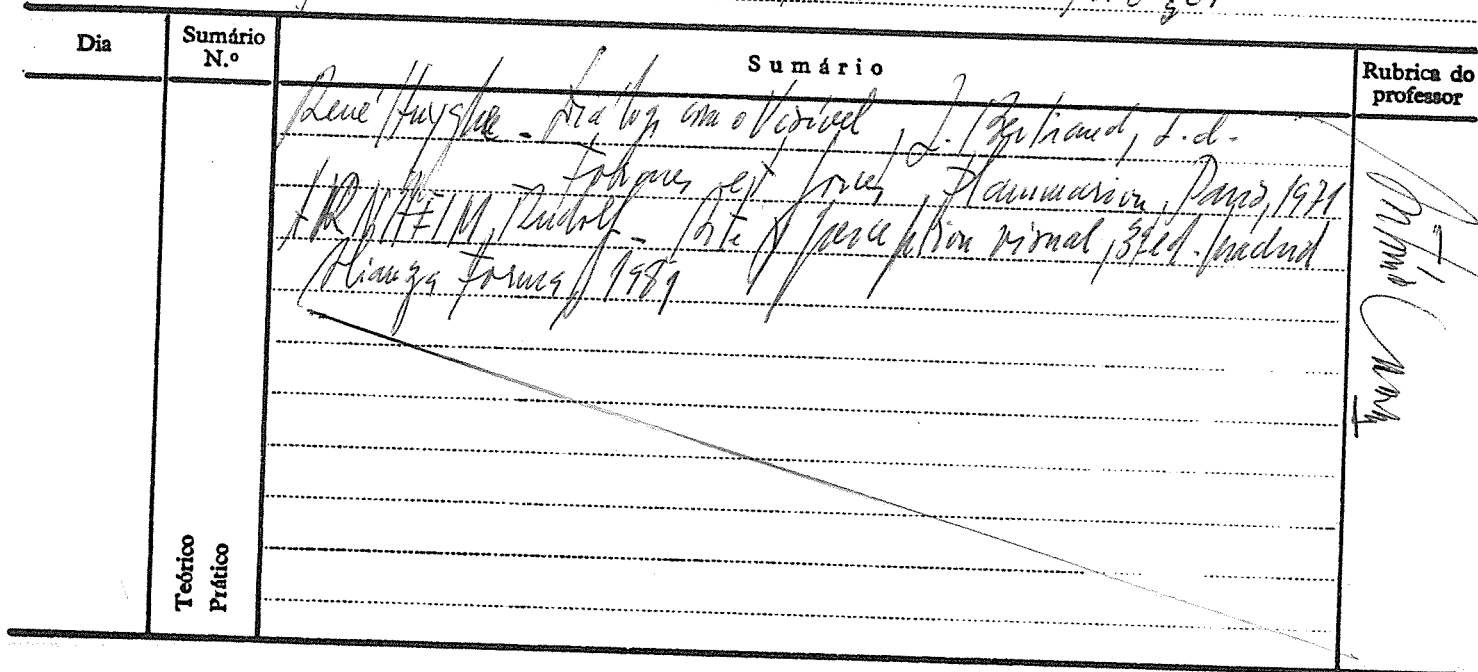 Dia
Sumário N.º
Sumário
Rubrica do professor
René Huyghe - Diálogo com o Visível, L. Bertrand, s.d.
Formes et forces, Flammarion, Paris, 1971
ARNHEIM, Rudolf - Arte y percepción visual, 3ª ed. Madrid
Alianza Forma, 1989
Teórico
Prático
António